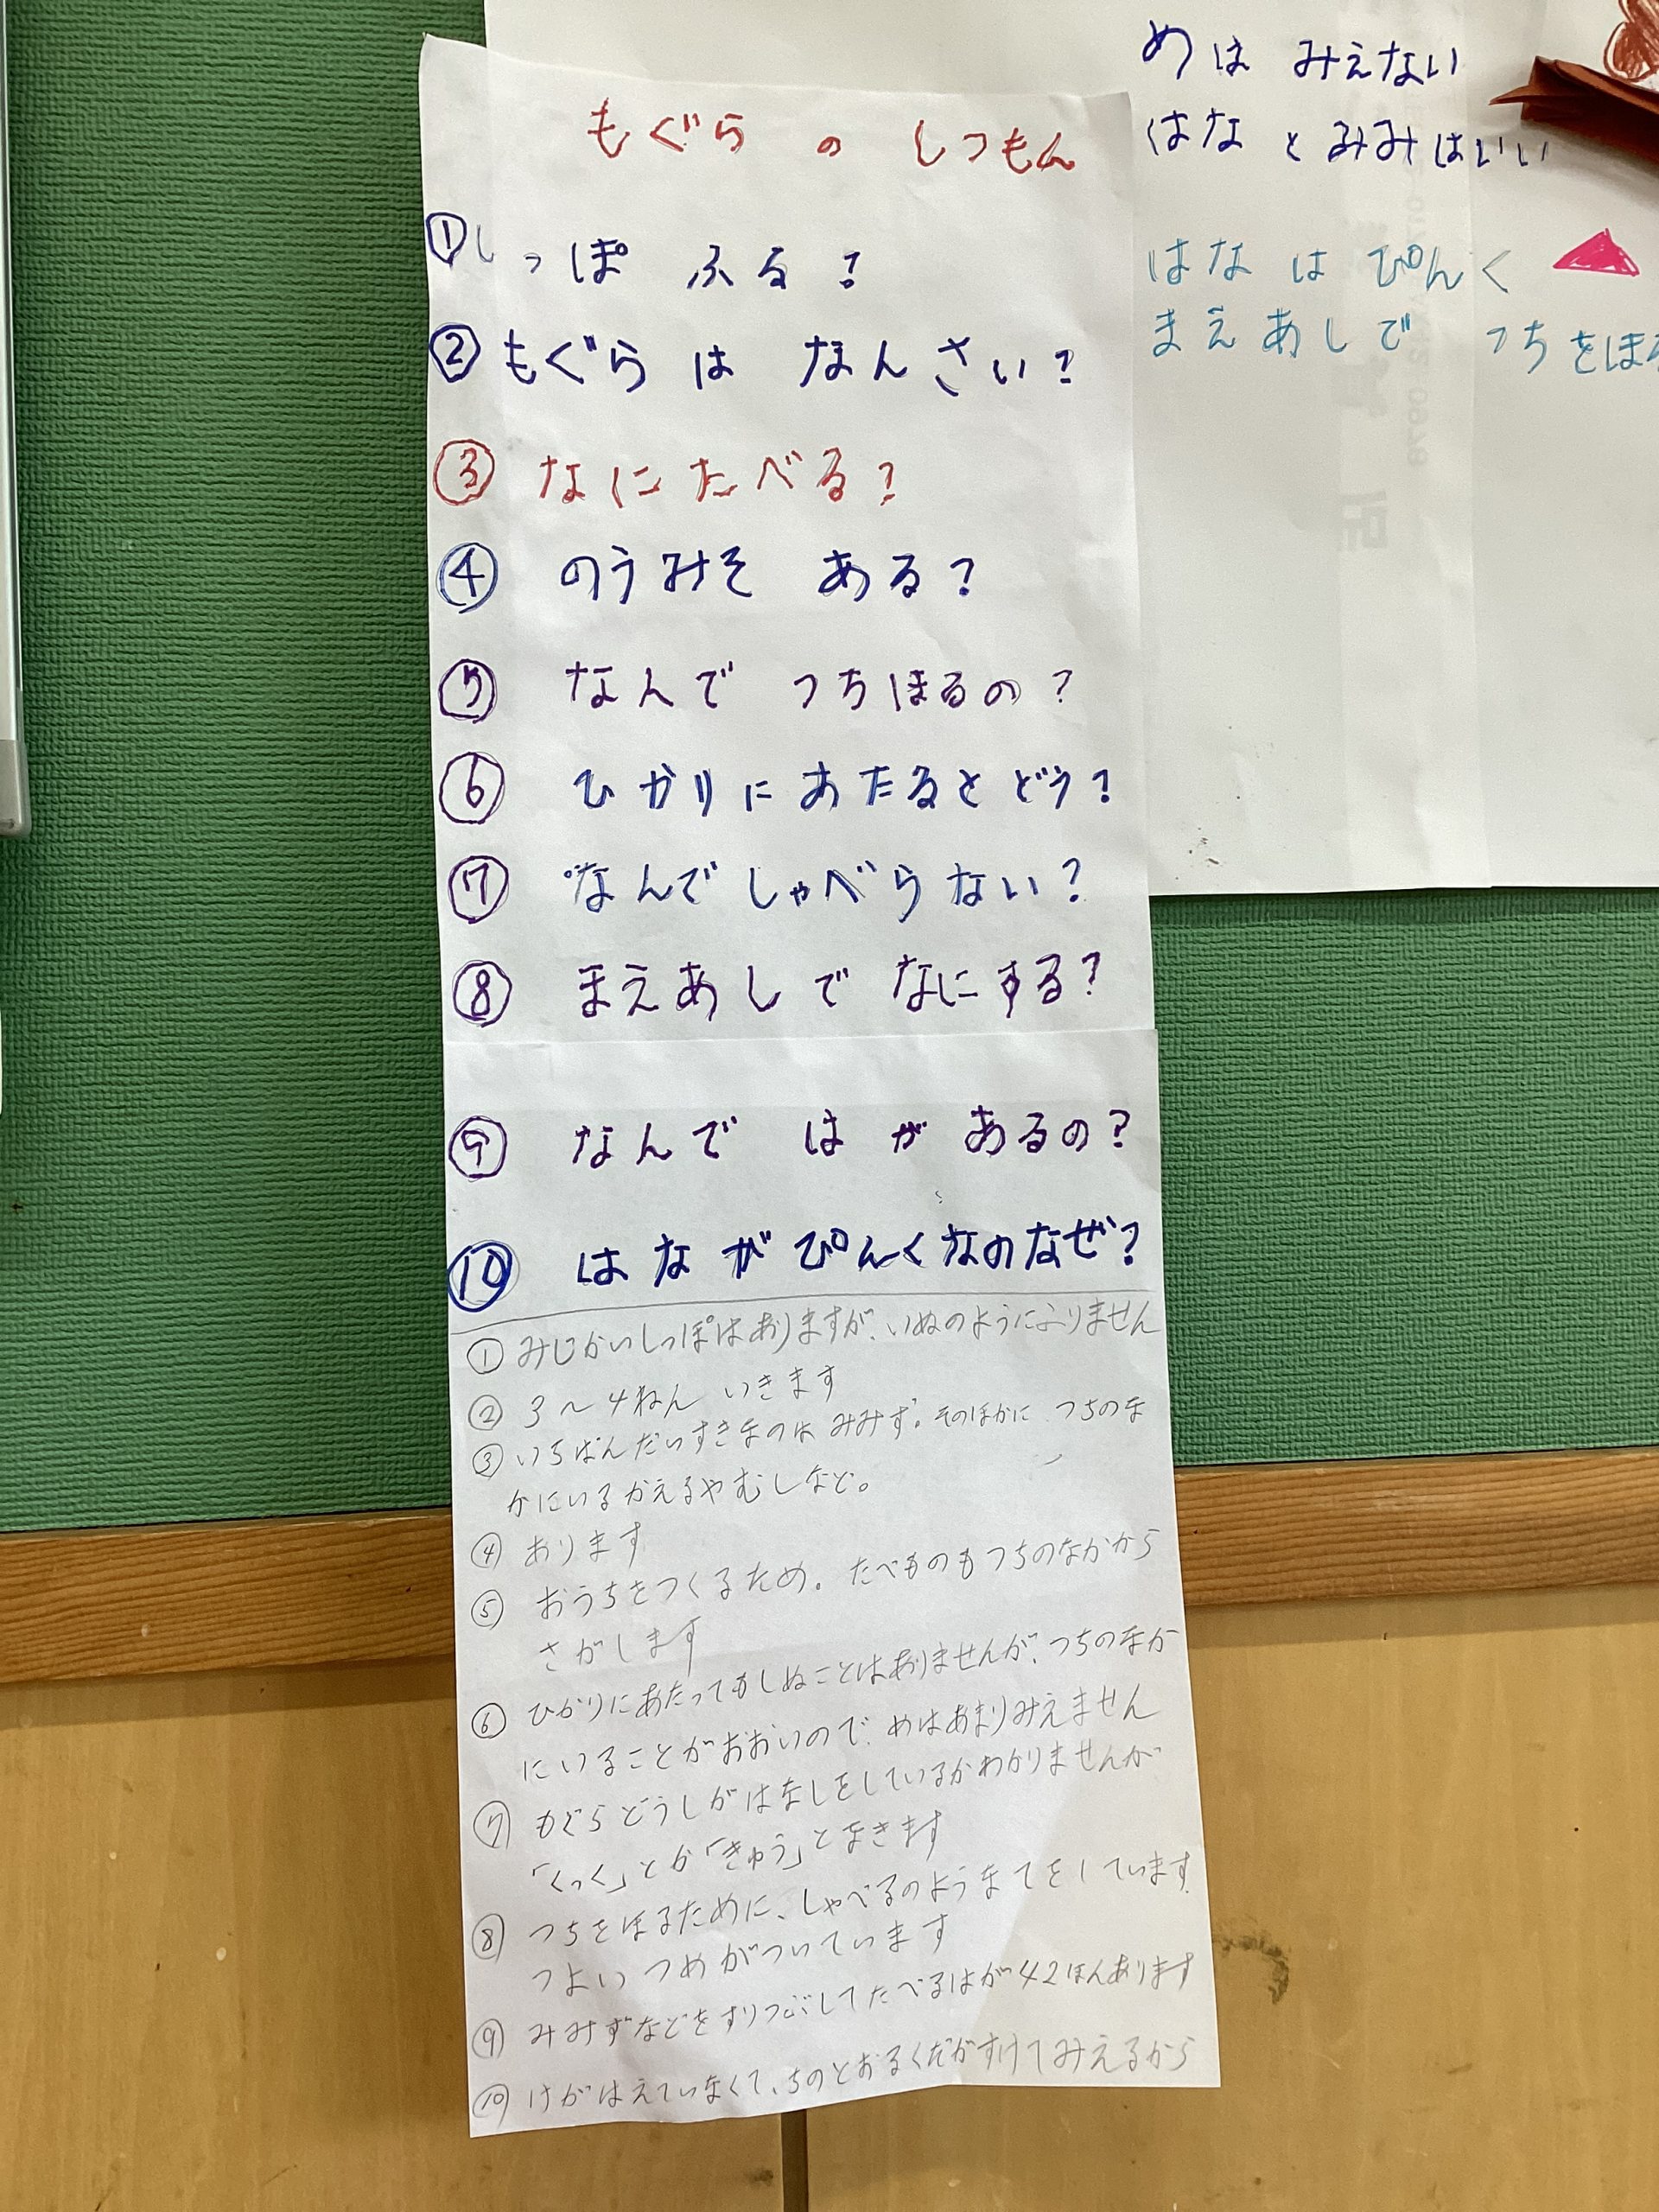 もぐら の しつもん
①しっぽ ふる?
②もぐら は なんさい?
③ なにたべる?
④ のうみそ ある?
⑤ なんで つちほるの?
⑥ ひかりにあたるとどう?
⑦ なんでしゃべらない?
⑧ まえあしで なにする?
⑨ なんで はが あるの?
⑩ はながぴんくなのなぜ?
① みじかいしっぽはありますが、いぬのようにふりません
② 3〜4ねん いきます
③ いちばんだいすきなのは みみず。そのほかに つちのな
かにいるかえるやむしなど。
④ あります
⑤ おうちをつくるため。たべものもつちのなかから
さがします
⑥ ひかりにあたってもしぬことはありませんが、つちのなか
にいることがおおいので、めはあまりみえません
⑦ もぐらどうしがはなしをしているかわかりませんが
「くっく」とか「きゅう」となきます
⑧ つちをほるために、しゃべるのようなてをしています
つよい つめがついています
⑨ みみずなどをすりつぶしてたべるはが42ほんあります
⑩ けがはえていなくて、ちのとおるくだがすけてみえるから
めは みえない
はな と みみはいい
はな は ぴんく
まえあしで つちをほる